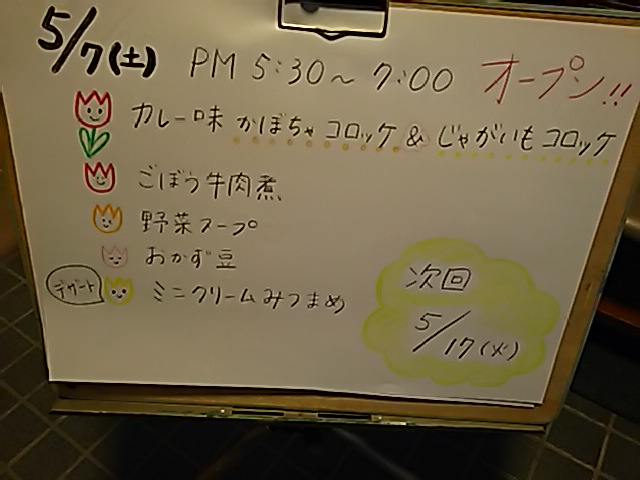 5/7(土) PM 5:30～7:00 オープン!!
カレー味 かぼちゃコロッケ & じゃがいもコロッケ
ごぼう牛肉煮
野菜スープ
おかず豆
デザート ミニクリームみつまめ
次回
5/17(火)